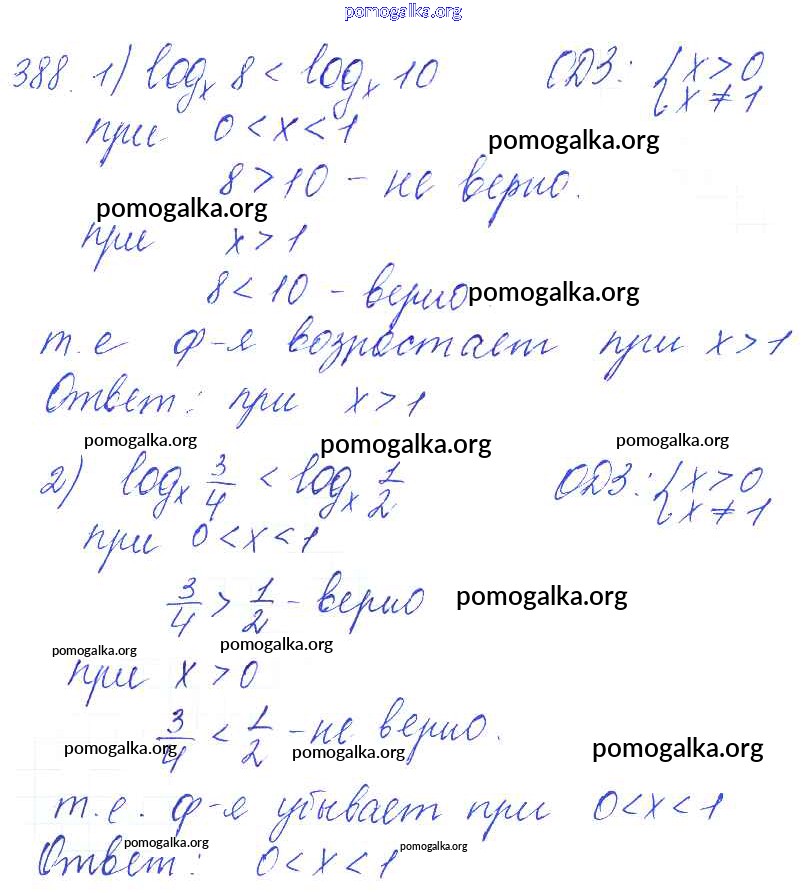 pomogalka.org
388. 1) log_x 8 < log_x 10 ОДЗ: { x > 0
x ≠ 1
при 0 < x < 1
pomogalka.org
8 > 10 – не верно.
pomogalka.org
при x > 1
8 < 10 – верно pomogalka.org
т.е ф-я возрастает при x > 1
Ответ: при x > 1
pomogalka.org pomogalka.org pomogalka.org
2) log_x 3/4 < log_x 1/2 ОДЗ: { x > 0
x ≠ 1
при 0 < x < 1
3/4 > 1/2 – верно pomogalka.org
pomogalka.org pomogalka.org
при x > 0
3/4 < 1/2 – не верно.
pomogalka.org pomogalka.org pomogalka.org
т.е. ф-я убывает при 0 < x < 1
pomogalka.org pomogalka.org
Ответ: 0 < x < 1